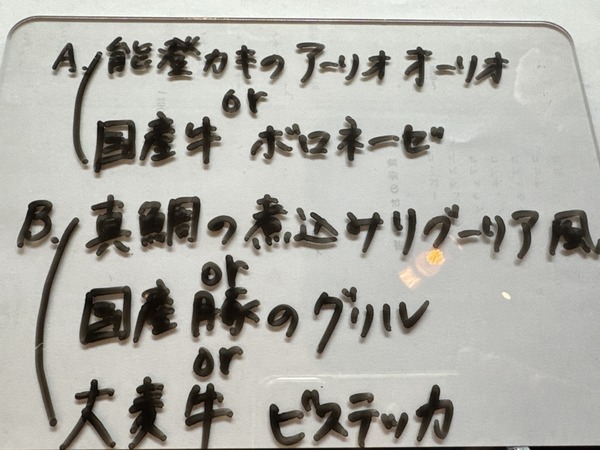 A. 能登カキの アーリオ オーリオ
or
国産牛 ボロネーゼ
B. 真鯛の煮込みリグーリア風
or
国産豚のグリル
or
大麦牛 ビステッカ